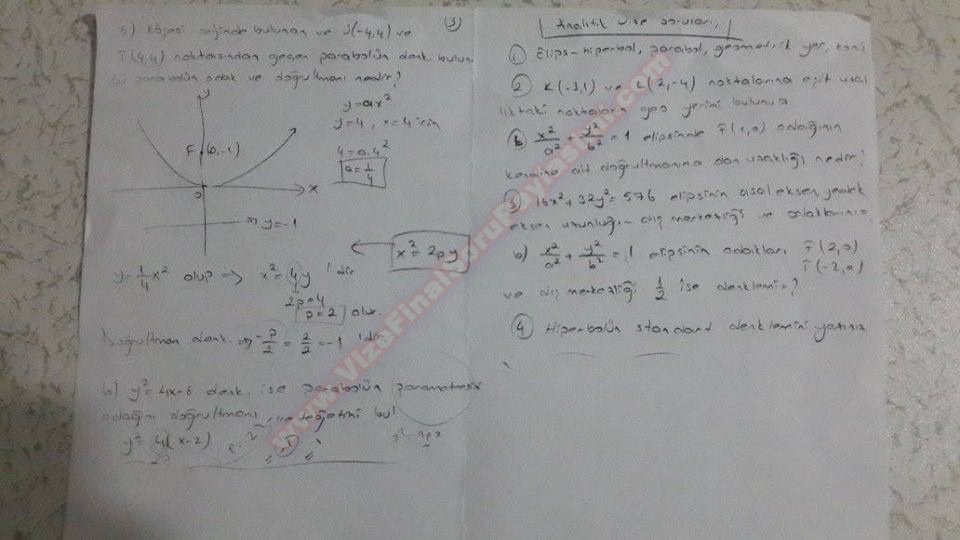 (3)
3) Köşesi orjinde bulunan ve J(-4,4) ve
T(4,4) noktasından geçen parabolün denk. bulun.
Bu parabolün odak ve doğrultmanı nedir?
y
y=ax²
y=4, x=4 için
4=a.4²
a=1/4
F(0,-1)
x
0
⇒ y=-1
x²=2py
y=1/4x² olup ⇒ x²=4y 'dir
2p=4
p=2 olur.
Doğrultman denk. ⇒ -p/2 = 2/2 = -1 'dir.
b) y²=4x-8 denk. ise parabolün parametresi
odağını doğrultmanı ve teğetini bul
y²=4(x-2)
y²=2px
Analitik Vize soruları
① Elips-hiperbol, parabol, geometrik yer, koni
② K(-3,1) ve L(2,-4) noktalarına eşit uzak
lıktaki noktaların geo yerini bulunuz
b) x²/a² + y²/b² = 1 elipsinde F(c,0) odağının
kendine ait doğrultmanına olan uzaklığı nedir?
③ 16x²+32y²=576 elipsinin asal eksen yedek
eksen uzunluğu- dış merkezliği ve odaklarını
b) x²/a² + y²/b² = 1 elipsinin odakları F(2,0)
F(-2,0)
ve dış merkezliği 1/2 ise denklemi=?
④ Hiperbolün standart denklemini yazınız
www.VizeFinalSoruPaylasimi.com